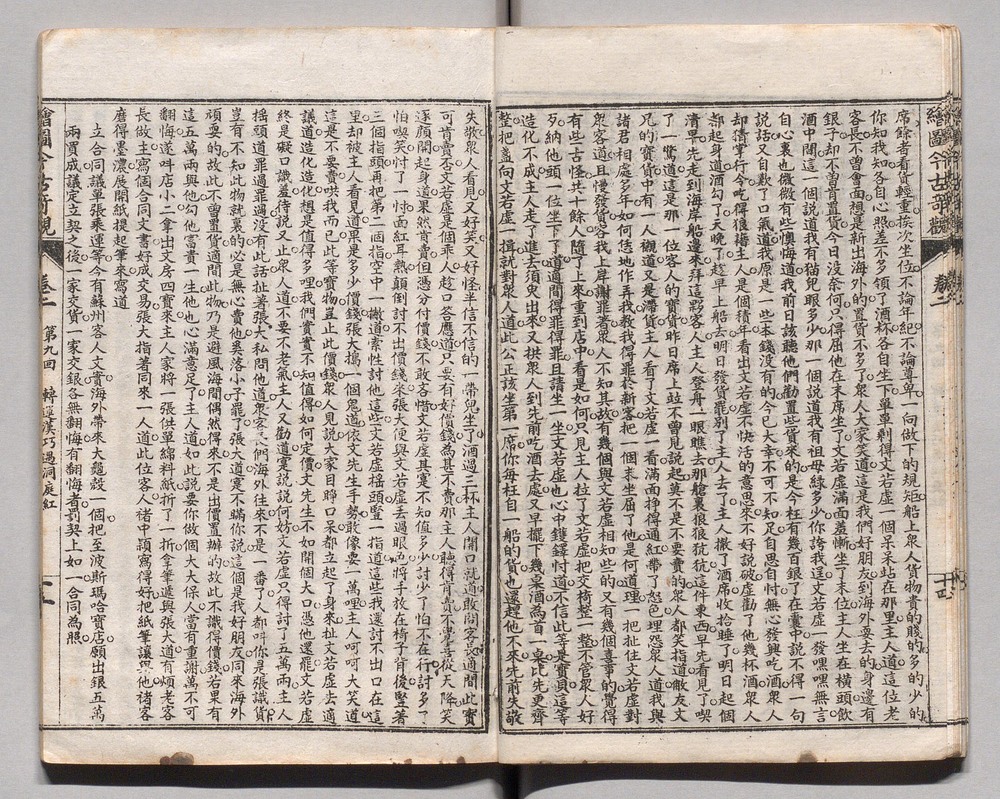 繪圖今古奇觀
卷二
十四
席餘者看貨輕重挨次坐位不論年紀不論尊卑一向做下的規矩船上眾人貨物貴的賤的多的少的
你知我知各自心照差不多領了酒杯各自坐下單單剩得文若虛一個呆呆站在那里主人道這位老
客長不曾會面想是新出海外的置貨不多了眾人大家笑道這是我們好朋友到海外耍去的身邊有
銀子却不曾肯置貨今日沒奈何只得屈他在末席坐了文若虛滿面羞慚坐了末位主人坐在橫頭飲
酒中間這一個說道我有猫兒眼多少那一個說道我有祖母綠多少你誇我逞文若虛一發嘿嘿無言
自心裏也微微有些懊悔道我前日該聽他們勸置些貨來的是今枉有幾百銀了在囊中說不得一句
說話又自歎了口氣道我原是一些本錢沒有的今已大幸不可不知足自思自忖無心發興吃酒眾人
却猜掌行令吃得狼藉主人是個積年看出文若虛不快活的意思來不好說破虛勸了他幾杯酒眾人
都起身道酒勾了天晚了趁早上船去明日發貨罷別了主人去了主人撤了酒席收拾睡了明日起個
清早先走到海岸船邊來拜這夥客人主人登舟一眼瞧去那艙裏狼狼犺犺這件東西早先看見了喫
了一驚道這是那一位客人的寶貨昨日席上並不曾見說起莫不是不要賣的眾人都笑指道敝友文
兄的寶貨中有一人襯道又是滯貨主人看了文若虛一看滿面掙得通紅帶了怒色埋怨眾人道我與
諸君相處多年如何恁地作弄我教我得罪於新客把一個末坐屈了他是何道理一把扯住文若虛對
眾客道且慢發貨容我上岸謝罪着眾人不知其故有幾個與文若虛相知些的又有幾個喜事的覺得
有些古怪共十餘人隨了上來重到店中看是如何只見主人拉了文若虛把交椅整一整不管眾人好
歹納他頭一位坐下了道適間得罪得罪且請坐一坐文若虛也心中鑊鐸忖道不信此等是寶貝這等
造化不成主人走了進去須臾出來又拱眾人到先前吃酒去處又早擺下幾桌酒為首一桌比先更齊
整把盞向文若虛一揖就對眾人道此公正該坐第一席你每枉自一船的貨也還趕他不來先前失敬
失敬眾人看見又好笑又好怪半信不信的一帶兒坐了酒過三杯主人開口就道敢問客長適間此寶
可肯賣否文若虛是個乖人趁口答應道只要有好價錢為甚不賣那主人聽得肯賣不覺喜從天降笑
逐顏開起身道果然肯賣但憑分付價錢不敢吝惜文若虛其實不知值多少討少了怕不在行討多了
怕喫笑忖了一忖面紅耳熱顛倒討不出價錢來張大便與文若虛丟過眼色將手放在椅子背後豎着
三個指頭再把第二個指空中一撇道索性討他這些文若虛搖頭豎一指道這些我還討不出口在這
里却被主人看見道果是多少價錢張大搗一個鬼道依文先生手勢敢像要一萬哩主人呵呵大笑道
這是不要賣哄我而已此等寶物豈止此價錢眾人見說大家目睜口呆都立起了身來扯文若虛去適
議道造化造化想是值得多哩我們實實不知值得如何定價文先生不如開個大口憑他還罷文若虛
終是礙口識羞待說又止眾人道不要不老氣主人又勸道實說說何妨文若虛只得討了五萬兩主人
搖頭道罪過罪過沒有此話扯著張大私問他道眾客人們海外往來不是一番了人都叫你是張識貨
豈有不知此物就裏的必是無心賣他奚落小子罷了張大道實不瞞你說這個是我好朋友同來海外
頑耍的故此不曾置貨適間此物乃是避風海間偶然得來不是出價置辦的故此不識得價錢若果有
這五萬與他勾他富貴一生他也心滿意足了主人道如此說要你做個大大保人當有重謝萬不可
翻悔遂叫店小二拿出文房四寶來主人家將一張供單綿料紙折了一折拿筆遞與張大道有煩老客
長做主寫個合同文書好成交易張大指著同來一人道此位客人褚中穎寫得好把紙筆讓與他褚客
磨得墨濃展開紙提起筆來寫道
立合同議單張乘運等今有蘇州客人文實海外帶來大龜殼一個投至波斯瑪哈寶店願出銀五萬
兩買成議定立契之後一家交貨一家交銀各無翻悔有翻悔者罰契上加一合同為照
繪圖今古奇觀
卷二
第九回
轉運漢巧遇洞庭紅